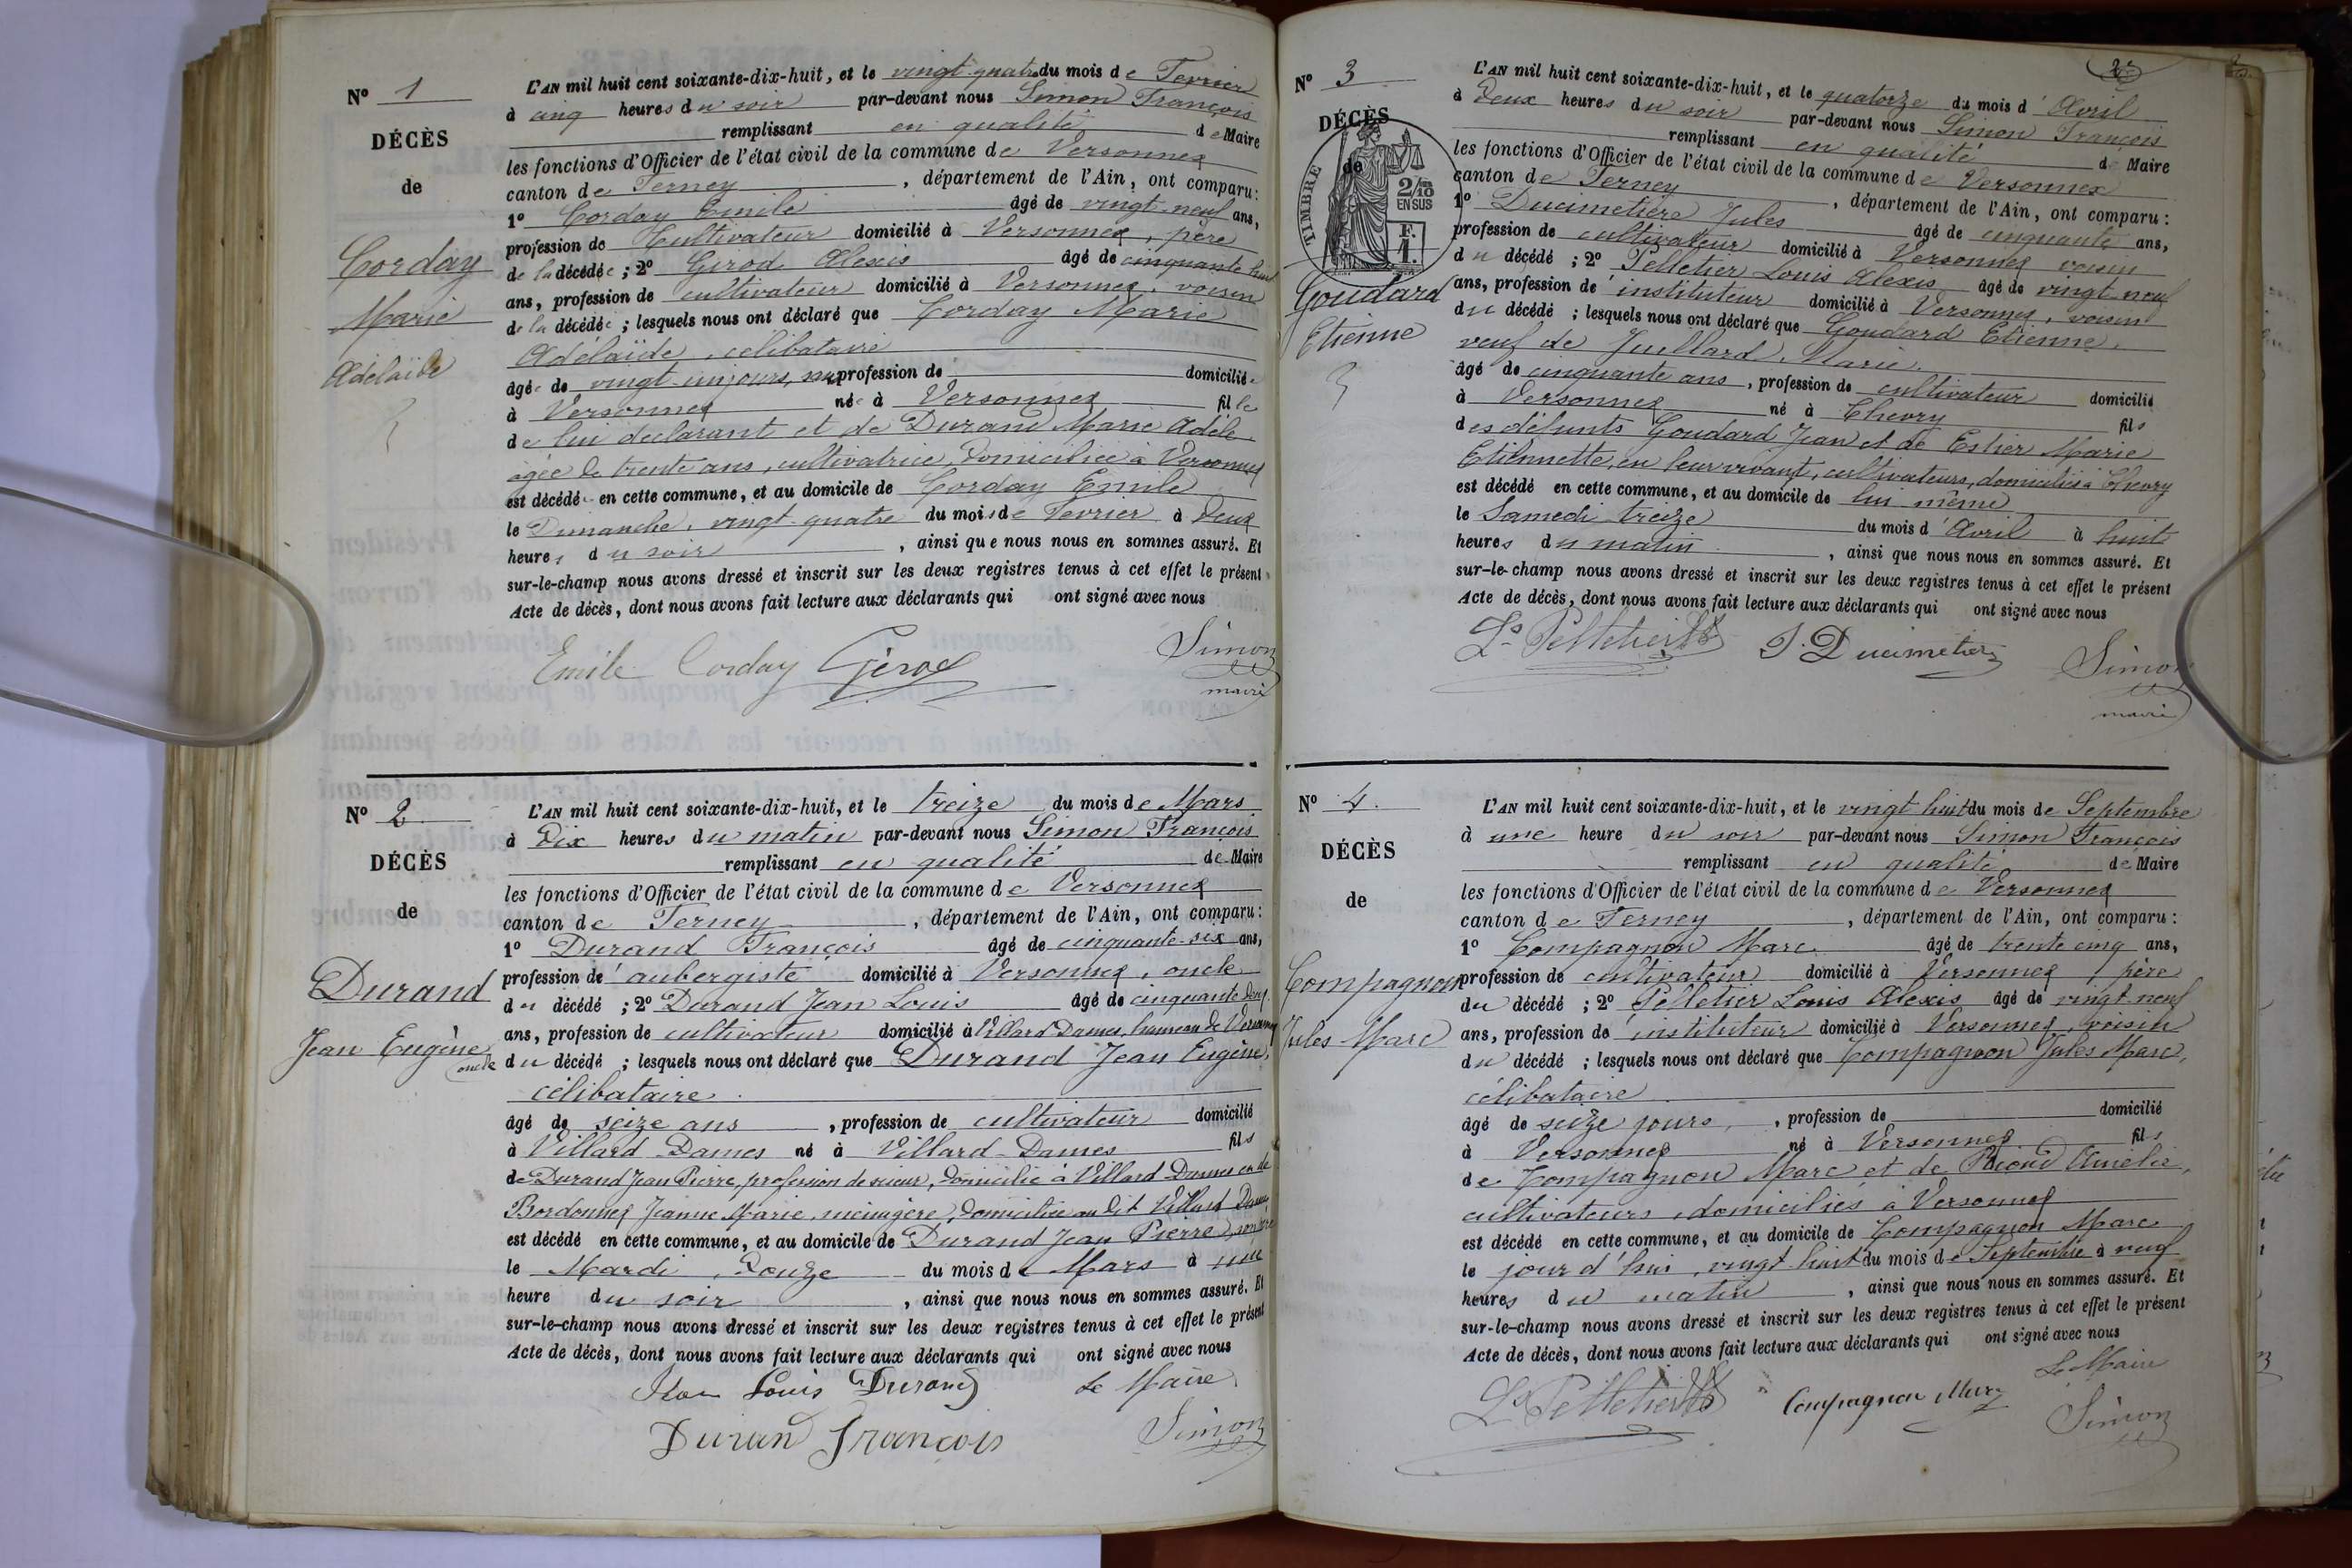 N° 1
DÉCÈS
de
Corday
Marie
Adélaïde
L'AN mil huit cent soixante-dix-huit, et le vingt-quatre du mois de Fevrier
à cinq heures du soir par-devant nous Simon François
remplissant en qualité de Maire
les fonctions d'Officier de l'état civil de la commune de Versonnex
canton de Ferney, département de l'Ain, ont comparu:
1° Corday Emile âgé de vingt-neuf ans,
profession de Cultivateur domicilié à Versonnex, père
de la décédée; 2° Gerod Alexis âgé de cinquante huit
ans, profession de cultivateur domicilié à Versonnex, voisin
de la décédée; lesquels nous ont déclaré que Corday Marie
Adélaïde, célibataire
âgée de vingt-un jours, profession de domiciliée
à Versonnex née à Versonnex fille
de lui déclarant et de Durand Marie Adèle
agée de trente ans, cultivatrice, domiciliée à Versonnex
est décédée en cette commune, et au domicile de Corday Emile
le Dimanche, vingt-quatre du mois de Fevrier à deux
heures du soir, ainsi que nous nous en sommes assuré. Et
sur-le-champ nous avons dressé et inscrit sur les deux registres tenus à cet effet le présent
Acte de décès, dont nous avons fait lecture aux déclarants qui ont signé avec nous
Emile Corday Gerod Simon
maire
N° 2
DÉCÈS
de
Durand
Jean Eugène
oncle
L'AN mil huit cent soixante-dix-huit, et le treize du mois de Mars
à Dix heures du matin par-devant nous Simon François
remplissant en qualité de Maire
les fonctions d'Officier de l'état civil de la commune de Versonnex
canton de Ferney, département de l'Ain, ont comparu:
1° Durand François âgé de cinquante-six ans,
profession de aubergiste domicilié à Versonnex, oncle
du décédé; 2° Durand Jean Louis âgé de cinquante deux
ans, profession de cultivateur domicilié à Villard Dames, hameau de Versonnex
du décédé; lesquels nous ont déclaré que Durand Jean Eugène,
célibataire
âgé de seize ans, profession de cultivateur domicilié
à Villard-Dames né à Villard-Dames fils
de Durand Jean Pierre, profession de scieur, domicilié à Villard Dames et de
Bordonnex Jeanne Marie, ménagère, domiciliée au dit Villard Dames
est décédé en cette commune, et au domicile de Durand Jean Pierre, son père
le Mardi, Douze du mois de Mars à une
heure du soir, ainsi que nous nous en sommes assuré. Et
sur-le-champ nous avons dressé et inscrit sur les deux registres tenus à cet effet le présent
Acte de décès, dont nous avons fait lecture aux déclarants qui ont signé avec nous
Jean Louis Durand Le Maire
Duran François Simon
2
N° 3
DÉCÈS
de
TIMBRE
2/10
EN SUS
F.
1.
Goudard
Etienne
L'AN mil huit cent soixante-dix-huit, et le quatorze du mois d'Avril
à Deux heures du soir par-devant nous Simon François
remplissant en qualité de Maire
les fonctions d'Officier de l'état civil de la commune de Versonnex
canton de Ferney, département de l'Ain, ont comparu:
1° Ducimetière Jules âgé de cinquante ans,
profession de cultivateur domicilié à Versonnex voisin
du décédé; 2° Pelletier Louis Alexis âgé de vingt neuf
ans, profession de instituteur domicilié à Versonnex, voisin
du décédé; lesquels nous ont déclaré que Goudard Etienne,
veuf de Juillard, Marie,
âgé de cinquante ans, profession de cultivateur domicilié
à Versonnex né à Chevry fils
des défunts Goudard Jean et de Estier Marie
Etiennette, en leur vivant, cultivateurs, domiciliés à Chevry
est décédé en cette commune, et au domicile de lui même
le Samedi treize du mois d'Avril à huit
heures du matin, ainsi que nous nous en sommes assuré. Et
sur-le-champ nous avons dressé et inscrit sur les deux registres tenus à cet effet le présent
Acte de décès, dont nous avons fait lecture aux déclarants qui ont signé avec nous
Ls Pelletier J. Ducimetière Simon
maire
N° 4.
DÉCÈS
de
Compagnon
Jules Marc
L'AN mil huit cent soixante-dix-huit, et le vingt huit du mois de Septembre
à une heure du soir par-devant nous Simon François
remplissant en qualité de Maire
les fonctions d'Officier de l'état civil de la commune de Versonnex
canton de Ferney, département de l'Ain, ont comparu:
1° Compagnon Marc âgé de trente cinq ans,
profession de cultivateur domicilié à Versonnex père
du décédé; 2° Pelletier Louis Alexis âgé de vingt neuf
ans, profession de instituteur domicilié à Versonnex, voisin
du décédé; lesquels nous ont déclaré que Compagnon Jules Marc,
célibataire
âgé de seize jours, profession de domicilié
à Versonnex né à Versonnex fils
de Compagnon Marc et de Amélie,
cultivateurs, domiciliés à Versonnex
est décédé en cette commune, et au domicile de Compagnon Marc
le jour d'hui, vingt-huit du mois de Septembre à neuf
heures du matin, ainsi que nous nous en sommes assuré. Et
sur-le-champ nous avons dressé et inscrit sur les deux registres tenus à cet effet le présent
Acte de décès, dont nous avons fait lecture aux déclarants qui ont signé avec nous
Le Maire
Ls Pelletier Compagnon Marc Simon